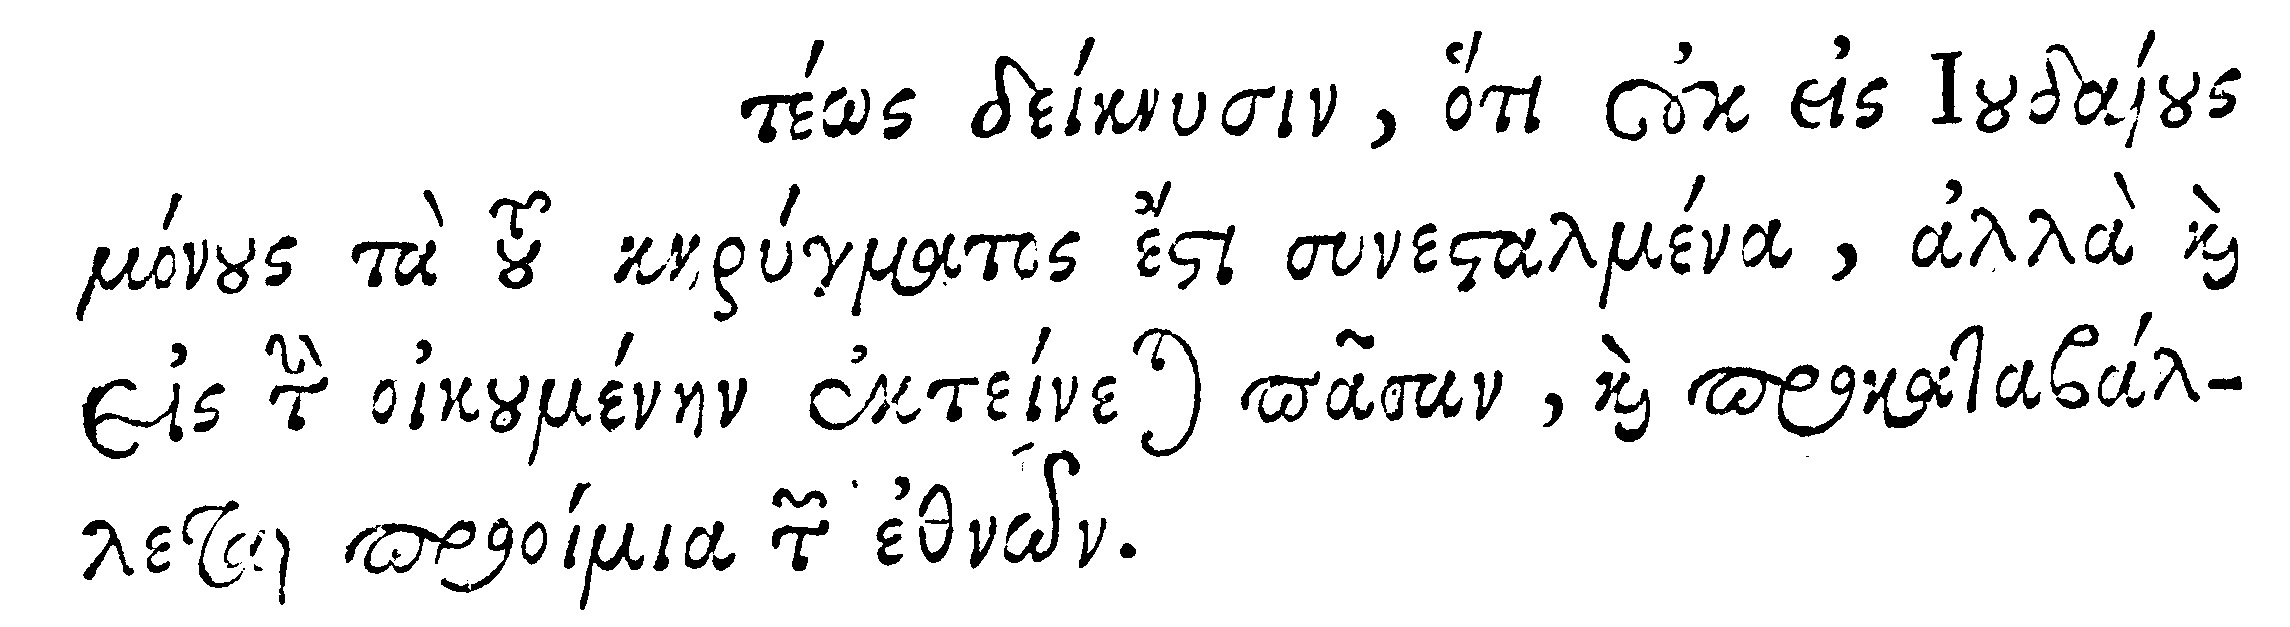 τέως δείκνυσιν, ὅτι οὐκ εἰς Ιουδαίους
μόνους τὰ τοῦ κηρύγματος ἔστι συνεσταλμένα, ἀλλὰ καὶ
εἰς τὴν οἰκουμένην ἐκτείνεται πᾶσαν, καὶ προκαταβάλ-
λεται προοίμια τῶν ἐθνῶν.